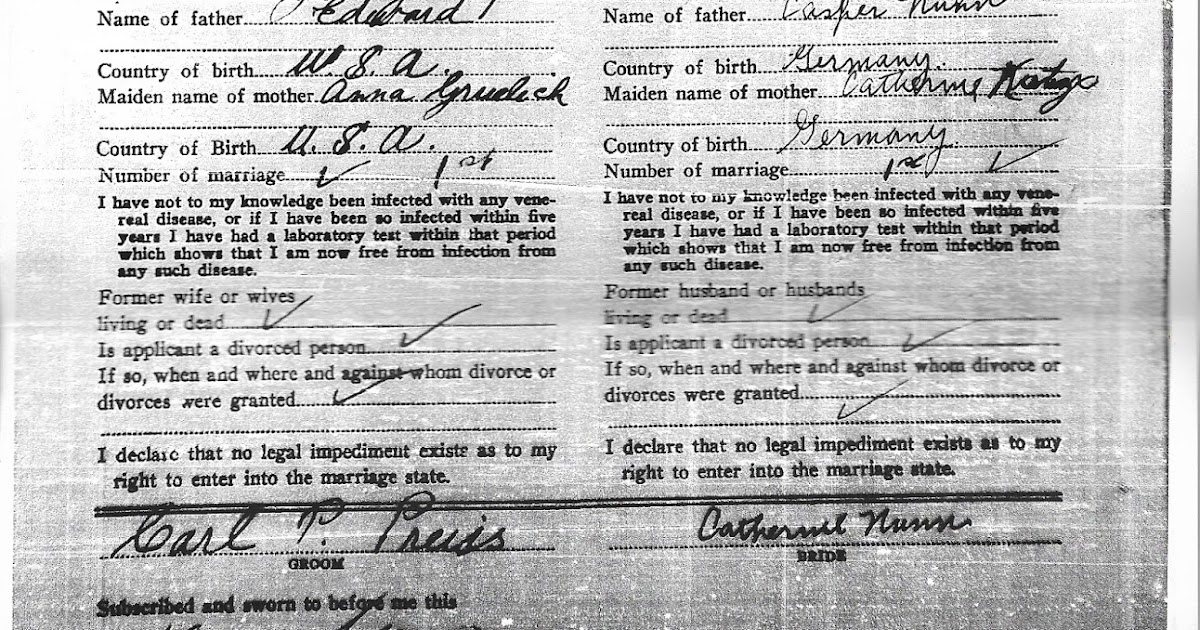 Name of father Edward
Country of birth U. S. A.
Maiden name of mother Anna Grulich
Country of Birth U. S. A.
Number of marriage 1st
I have not to my knowledge been infected with any vene-
real disease, or if I have been so infected within five
years I have had a laboratory test within that period
which shows that I am now free from infection from
any such disease.
Former wife or wives
living or dead
Is applicant a divorced person
If so, when and where and against whom divorce or
divorces were granted
I declare that no legal impediment exists as to my
right to enter into the marriage state.
Carl P. Preiss
GROOM
Subscribed and sworn to before me this
Name of father Casper Nunn
Country of birth Germany
Maiden name of mother Catherine
Country of birth Germany
Number of marriage 1st
I have not to my knowledge been infected with any vene-
real disease, or if I have been so infected within five
years I have had a laboratory test within that period
which shows that I am now free from infection from
any such disease.
Former husband or husbands
living or dead
Is applicant a divorced person
If so, when and where and against whom divorce or
divorces were granted
I declare that no legal impediment exists as to my
right to enter into the marriage state.
Catherine Nunn
BRIDE